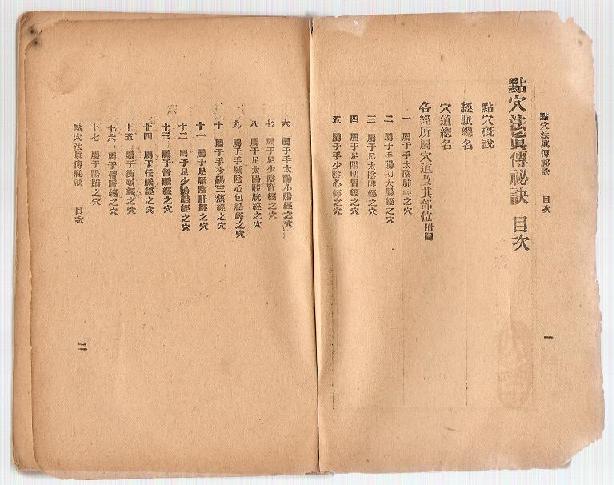 點穴法眞傳秘訣 目次 一
點穴法眞傳祕訣 目次
點穴槪說
經脈總名
穴道總名
各經所屬穴道及其部位附圖
一 屬于手太陰肺經之穴
二 屬于手陽明大腸經之穴
三 屬于足太陰脾經之穴
四 屬于足陽明胃經之穴
五 屬于手少陰心經之穴
六 屬于手太陽小腸經之穴
七 屬于足少陰腎經之穴
八 屬于足太陽膀胱經之穴
九 屬于手厥陰心包絡經之穴
十 屬于手少陽三焦經之穴
十一 屬于足厥陰肝經之穴
十二 屬于足少陽膽經之穴
十三 屬于督脈經之穴
十四 屬于任脈經之穴
十五 屬于衝脈經之穴
十六 屬于經之穴
十七 屬于之穴
點穴法眞傳秘訣 目次 二